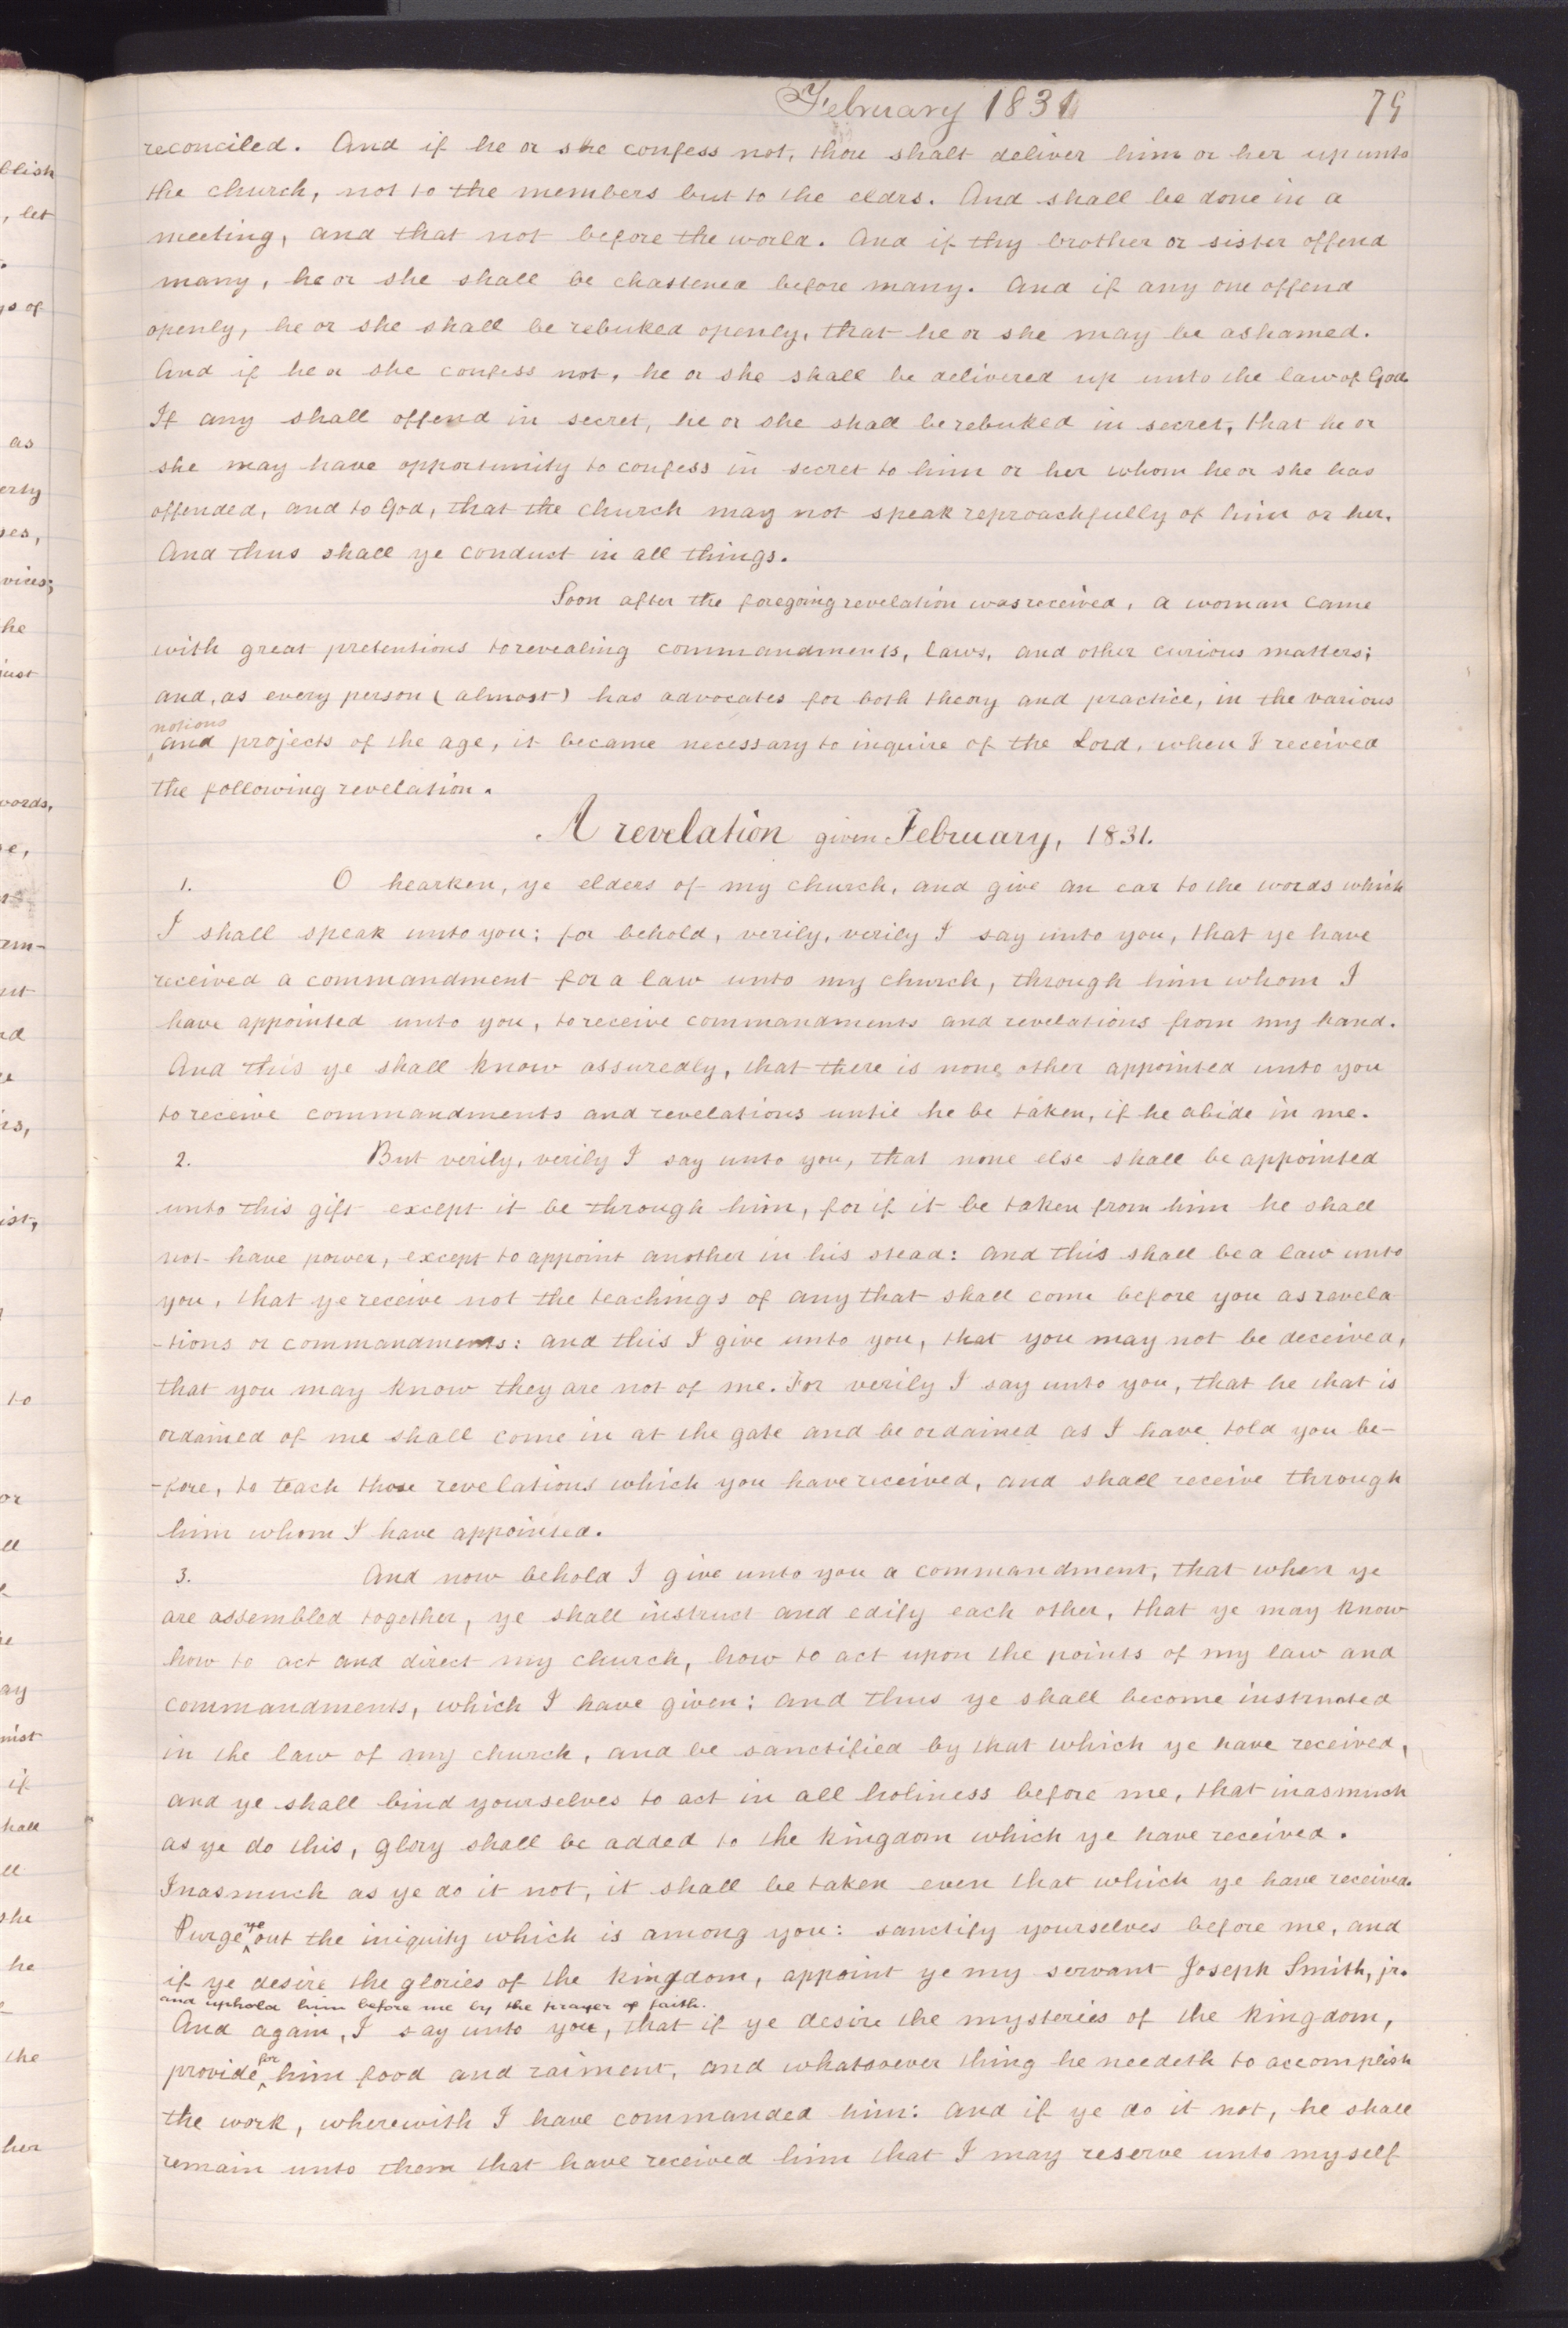 February 1831
79
reconciled. And if he or she confess not, thou shalt deliver him or her up unto
the church, not to the members but to the eldrs. And shall be done in a
meeting, and that not before the world. And if thy brother or sister offend
many, he or she shall be chastened before many. And if any one offend
openly, he or she shall be rebuked openly, that he or she may be ashamed.
And if he or she confess not, he or she shall be delivered up unto the law of God.
If any shall offend in secret, he or she shall be rebuked in secret, that he or
she may have opportunity to confess in secret to him or her whom he or she has
offended, and to God, that the church may not speak reproachfully of him or her.
And thus shall ye conduct in all things.
Soon after the foregoing revelation was received, a woman came
with great pretentions to revealing commandments, laws, and other curious matters;
and, as every person (almost) has advocates for both theory and practice, in the various
notions
and projects of the age, it became necessary to inquire of the Lord, when I received
the following revelation.
A revelation given February, 1831.
1. O hearken, ye elders of my church, and give an ear to the words which
I shall speak unto you: for behold, verily, verily I say unto you, that ye have
received a commandment for a law unto my church, through him whom I
have appointed unto you, to receive commandments and revelations from my hand.
And this ye shall know assuredly, that there is none other appointed unto you
to receive commandments and revelations until he be taken, if he abide in me.
2. But verily, verily I say unto you, that none else shall be appointed
unto this gift except it be through him, for if it be taken from him he shall
not have power, except to appoint another in his stead: and this shall be a law unto
you, that ye receive not the teachings of any that shall come before you as revela
-tions or commandments: and this I give unto you, that you may not be deceived,
that you may know they are not of me. For verily I say unto you, that he that is
ordained of me shall come in at the gate and be ordained as I have told you be-
-fore, to teach those revelations which you have received, and shall receive through
him whom I have appointed.
3. And now behold I give unto you a commandment, that when ye
are assembled together, ye shall instruct and edify each other, that ye may know
how to act and direct my church, how to act upon the points of my law and
commandments, which I have given: and thus ye shall become instructed
in the law of my church, and be sanctified by that which ye have received,
and ye shall bind yourselves to act in all holiness before me, that inasmuch
as ye do this, glory shall be added to the kingdom which ye have received.
Inasmuch as ye do it not, it shall be taken even that which ye have received.
Purge ye out the iniquity which is among you: sanctify yourselves before me, and
if ye desire the glories of the kingdom, appoint ye my servant Joseph Smith, jr.
and uphold him before me by the prayer of faith.
And again, I say unto you, that if ye desire the mysteries of the kingdom,
provide for him food and raiment, and whatsoever thing he needeth to accomplish
the work, wherewith I have commanded him: and if ye do it not, he shall
remain unto them that have received him that I may reserve unto myself